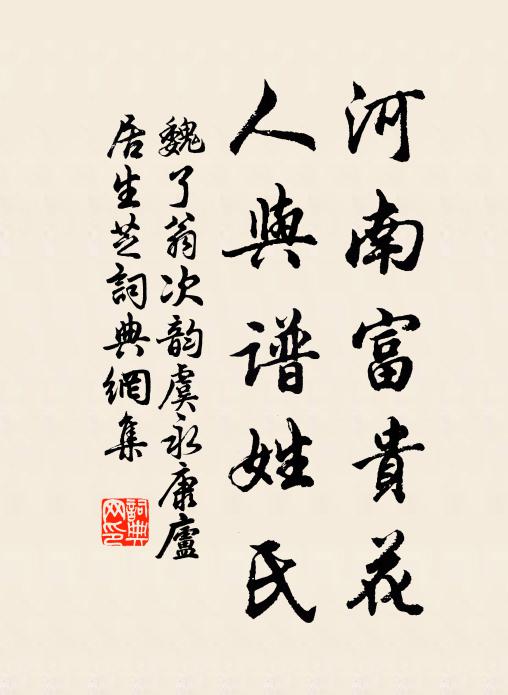 河南富貴花
人與譜姓氏
魏了翁次韵虞永康廬
居生芝詞典網集
詞典网印